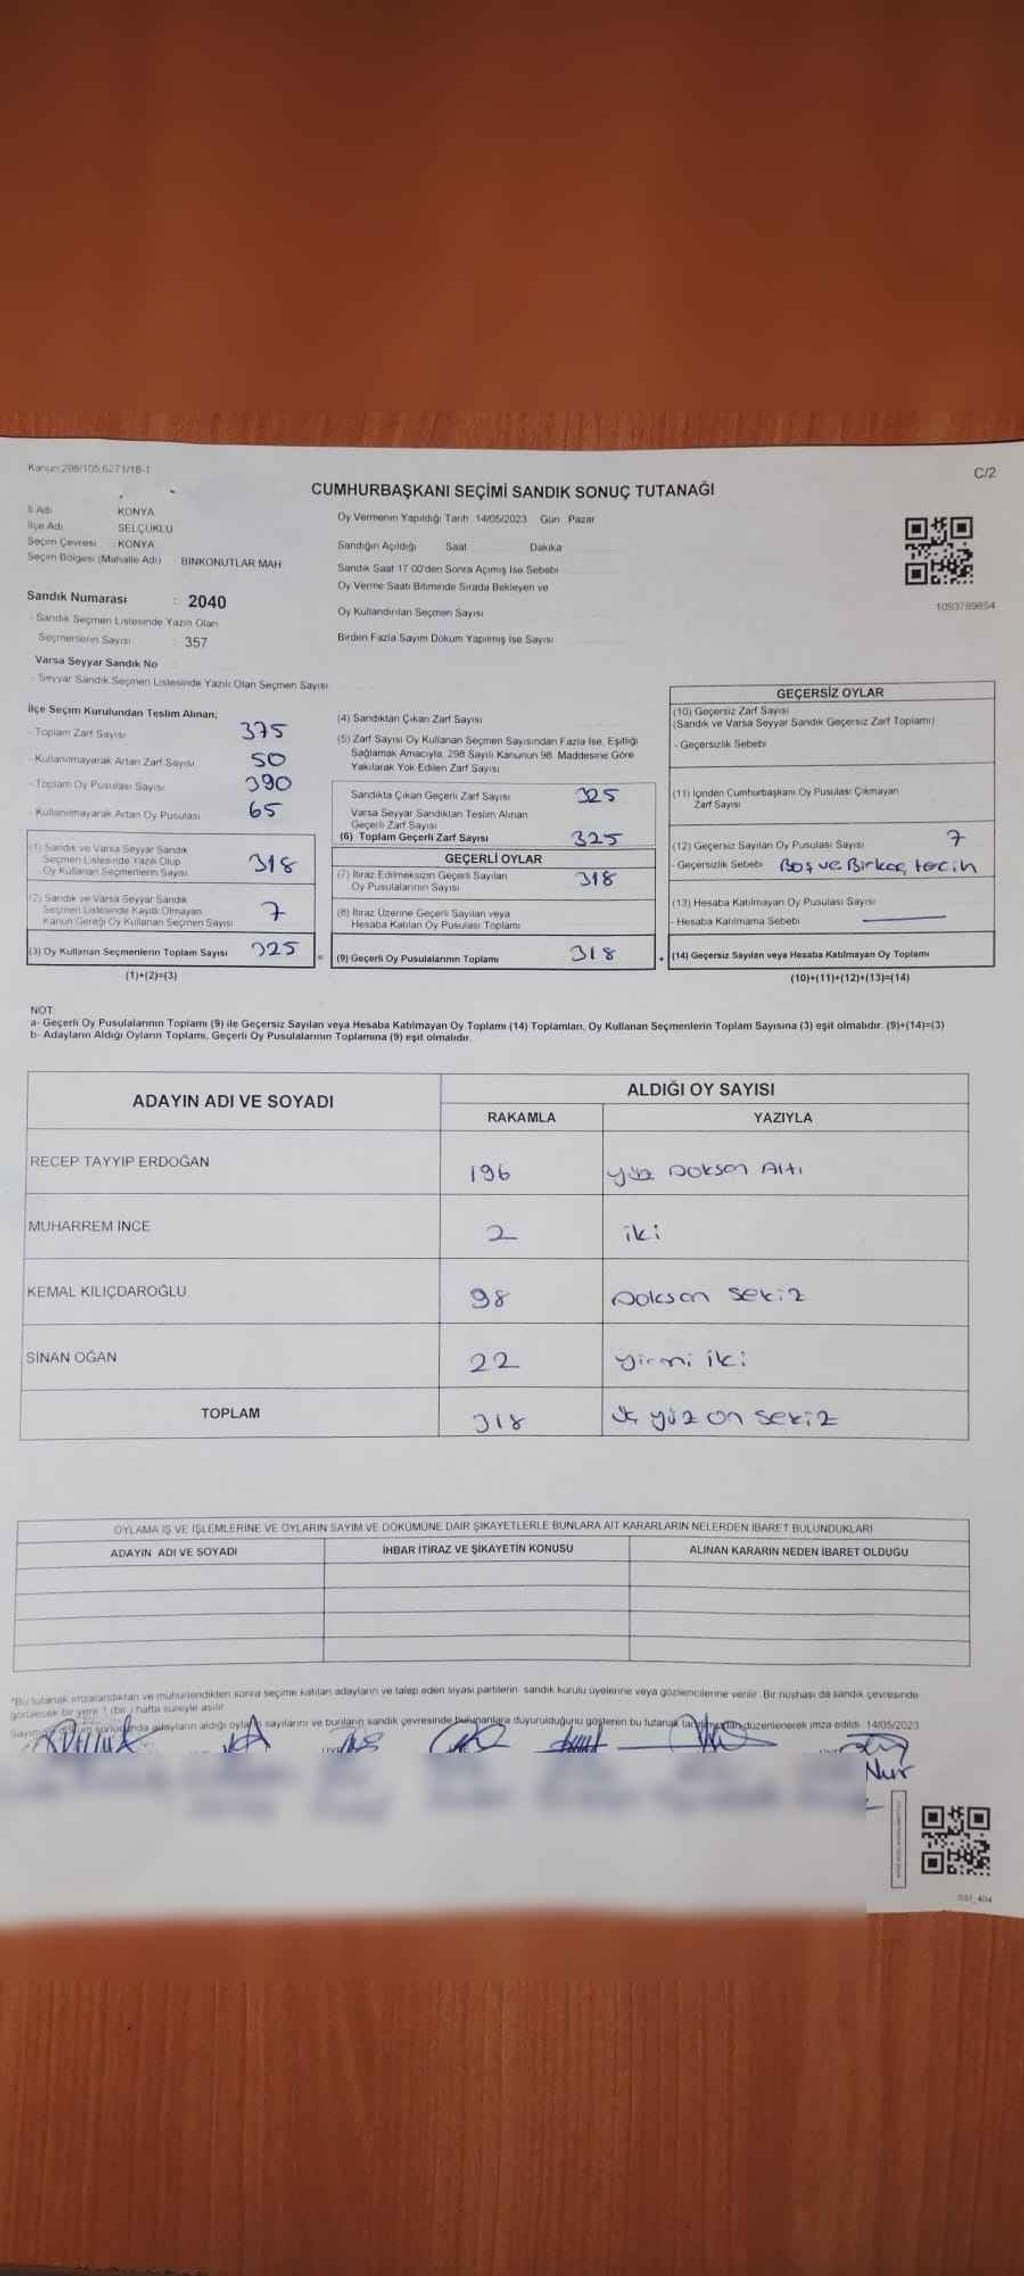 Kanun:298/105,6271/18-1
C/2
CUMHURBAŞKANI SEÇİMİ SANDIK SONUÇ TUTANAĞI
İl Adı KONYA
İlçe Adı SELÇUKLU
Seçim Çevresi : KONYA
Seçim Bölgesi (Mahalle Adı) : BİNKONUTLAR MAH
Sandık Numarası : 2040
- Sandık Seçmen Listesinde Yazılı Olan
Seçmenlerin Sayısı : 357
Varsa Seyyar Sandık No
- Seyyar Sandık Seçmen Listesinde Yazılı Olan Seçmen Sayısı
Oy Vermenin Yapıldığı Tarih 14/05/2023 Gün Pazar
Sandığın Açıldığı Saat Dakika
Sandık Saat 17 00'den Sonra Açımış İse Sebebi
Oy Verme Saati Bitiminde Sırada Bekleyen ve
Oy Kullandırılan Seçmen Sayısı
Birden Fazla Sayım Döküm Yapılmış İse Sayısı
1093789854
İlçe Seçim Kurulundan Teslim Alınan;
- Toplam Zarf Sayısı 375
- Kullanılmayarak Artan Zarf Sayısı 50
- Toplam Oy Pusulası Sayısı 390
- Kullanılmayarak Artan Oy Pusulası 65
(1) Sandık ve Varsa Seyyar Sandık
Seçmen Listesinde Yazılı Olup
Oy Kullanan Seçmenlerin Sayısı 318
(2) Sandık ve Varsa Seyyar Sandık
Seçmen Listesinde Kayıtlı Olmayan
Kanun Gereği Oy Kullanan Seçmen Sayısı 7
(3) Oy Kullanan Seçmenlerin Toplam Sayısı 325
(1)+(2)=(3)
(4) Sandıktan Çıkan Zarf Sayısı
(5) Zarf Sayısı Oy Kullanan Seçmen Sayısından Fazla İse, Eşitliği
Sağlamak Amacıyla, 298 Sayılı Kanunun 98. Maddesine Göre
Yakılarak Yok Edilen Zarf Sayısı
Sandıkta Çıkan Geçerli Zarf Sayısı 325
Varsa Seyyar Sandıktan Teslim Alınan
Geçerli Zarf Sayısı
(6) Toplam Geçerli Zarf Sayısı 325
GEÇERLİ OYLAR
(7) İtiraz Edilmeksizin Geçerli Sayılan
Oy Pusulalarının Sayısı 318
(8) İtiraz Üzerine Geçerli Sayılan veya
Hesaba Katılan Oy Pusulası Toplamı
= (9) Geçerli Oy Pusulalarının Toplamı 318
GEÇERSİZ OYLAR
(10) Geçersiz Zarf Sayısı
(Sandık ve Varsa Seyyar Sandık Geçersiz Zarf Toplamı)
- Geçersizlik Sebebi
(11) İçinden Cumhurbaşkanı Oy Pusulası Çıkmayan
Zarf Sayısı
(12) Geçersiz Sayılan Oy Pusulası Sayısı 7
- Geçersizlik Sebebi Boş ve Birkaç tercih
(13) Hesaba Katılmayan Oy Pusulası Sayısı
- Hesaba Katılmama Sebebi
+ (14) Geçersiz Sayılan veya Hesaba Katılmayan Oy Toplamı
(10)+(11)+(12)+(13)=(14)
NOT:
a- Geçerli Oy Pusulalarının Toplamı (9) ile Geçersiz Sayılan veya Hesaba Katılmayan Oy Toplamı (14) Toplamları, Oy Kullanan Seçmenlerin Toplam Sayısına (3) eşit olmalıdır. (9)+(14)=(3)
b- Adayların Aldığı Oyların Toplamı, Geçerli Oy Pusulalarının Toplamına (9) eşit olmalıdır.
ADAYIN ADI VE SOYADI ALDIĞI OY SAYISI
RAKAMLA YAZIYLA
RECEP TAYYİP ERDOĞAN 196 yüz Doksan Altı
MUHARREM İNCE 2 iki
KEMAL KILIÇDAROĞLU 98 Doksan sekiz
SİNAN OĞAN 22 yirmi iki
TOPLAM 318 üç yüz on sekiz
OYLAMA İŞ VE İŞLEMLERİNE VE OYLARIN SAYIM VE DÖKÜMÜNE DAİR ŞİKAYETLERLE BUNLARA AİT KARARLARIN NELERDEN İBARET BULUNDUKLARI
ADAYIN ADI VE SOYADI İHBAR İTİRAZ VE ŞİKAYETİN KONUSU ALINAN KARARIN NEDEN İBARET OLDUĞU
*Bu tutanak imzalandıktan ve mühürlendikten sonra seçime katılan adayların ve talep eden siyasi partilerin sandık kurulu üyelerine veya gözlemcilerine verilir. Bir nüshası da sandık çevresinde
görülecek bir yere 1 (bir) hafta süreyle asılır.
adayların aldığı oyların sayılarını ve bunların sandık çevresinde bulunanlara duyurulduğunu gösteren bu tutanak tarafımızdan düzenlenerek imza edildi. 14/05/2023
Nur